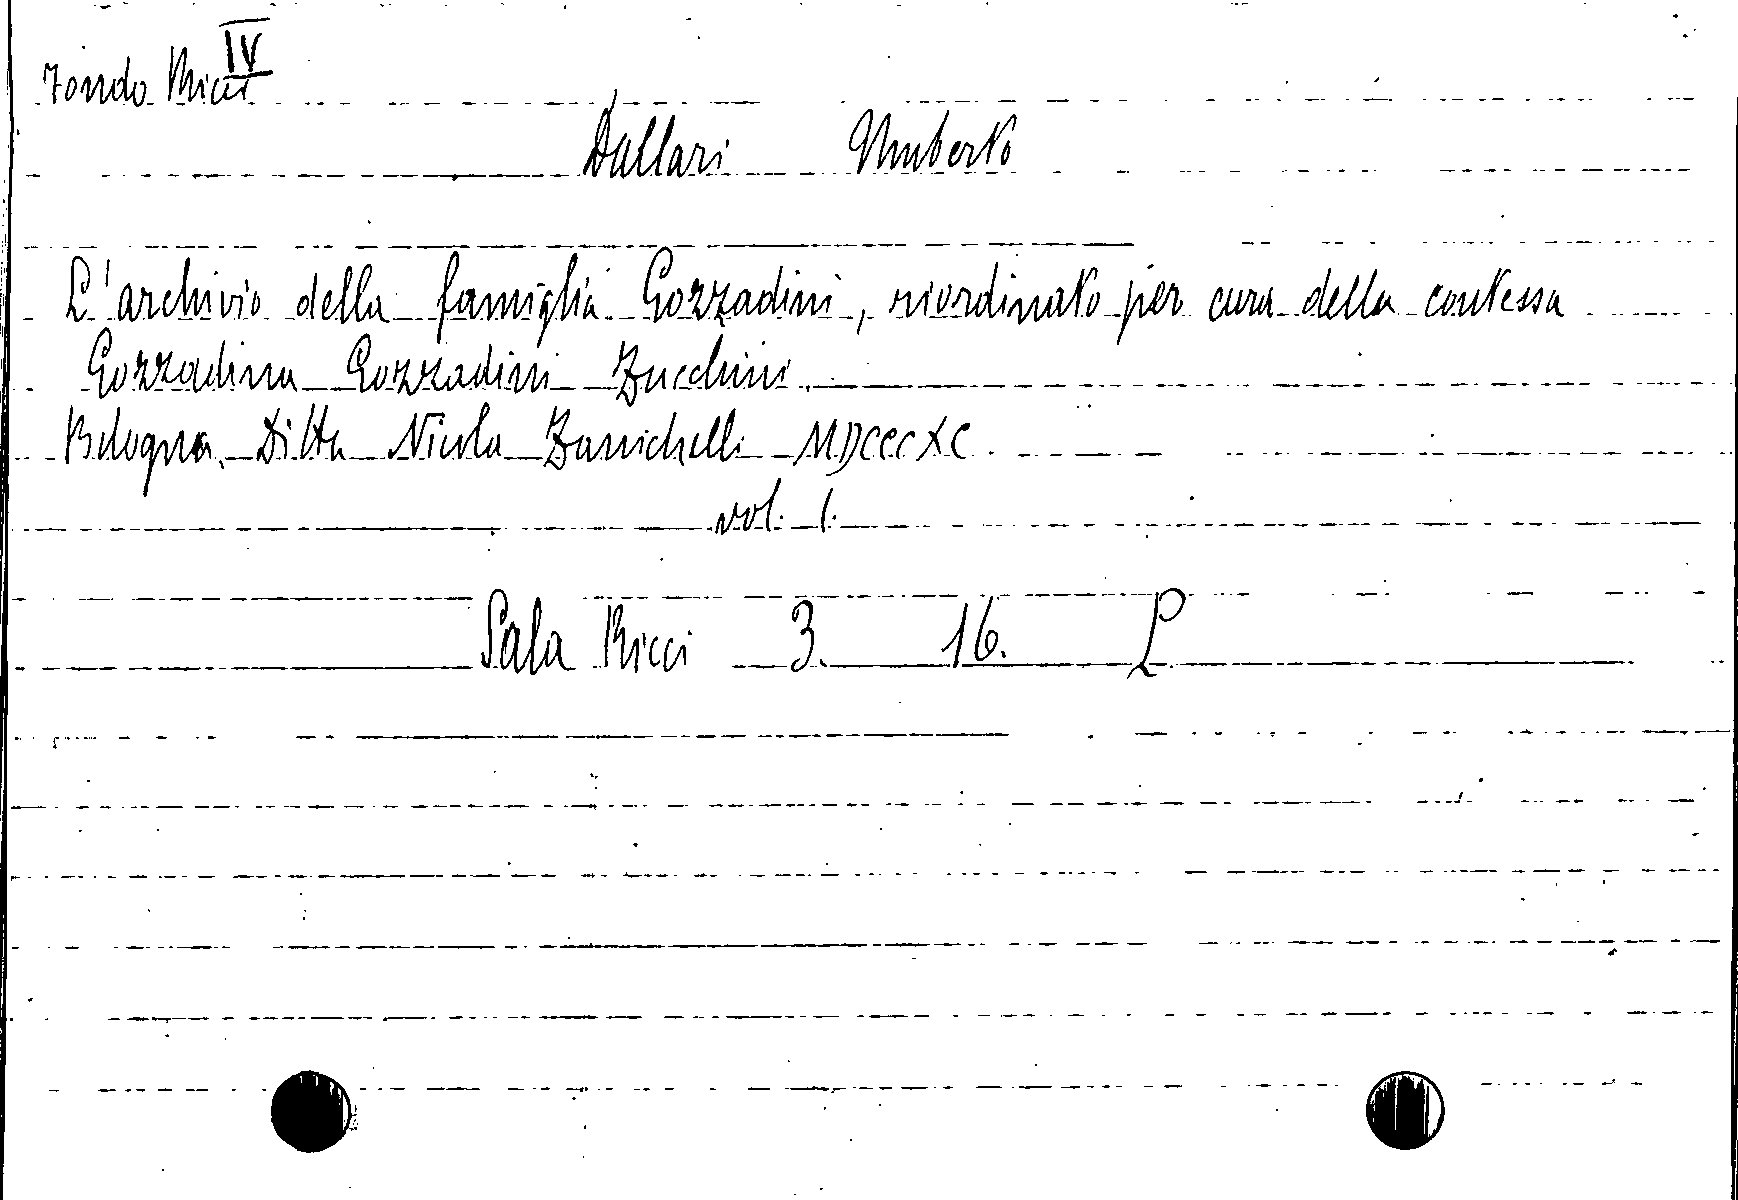 IV
Fondo Ricci
Dallari Umberto
L'archivio della famiglia Gozzadini, riordinato per cura della contessa
Gozzadina Gozzadini Zucchini.
Bologna. Ditta Nicola Zanichelli MDCCCXC.
vol. 1.
Sala Ricci 3. 16. L